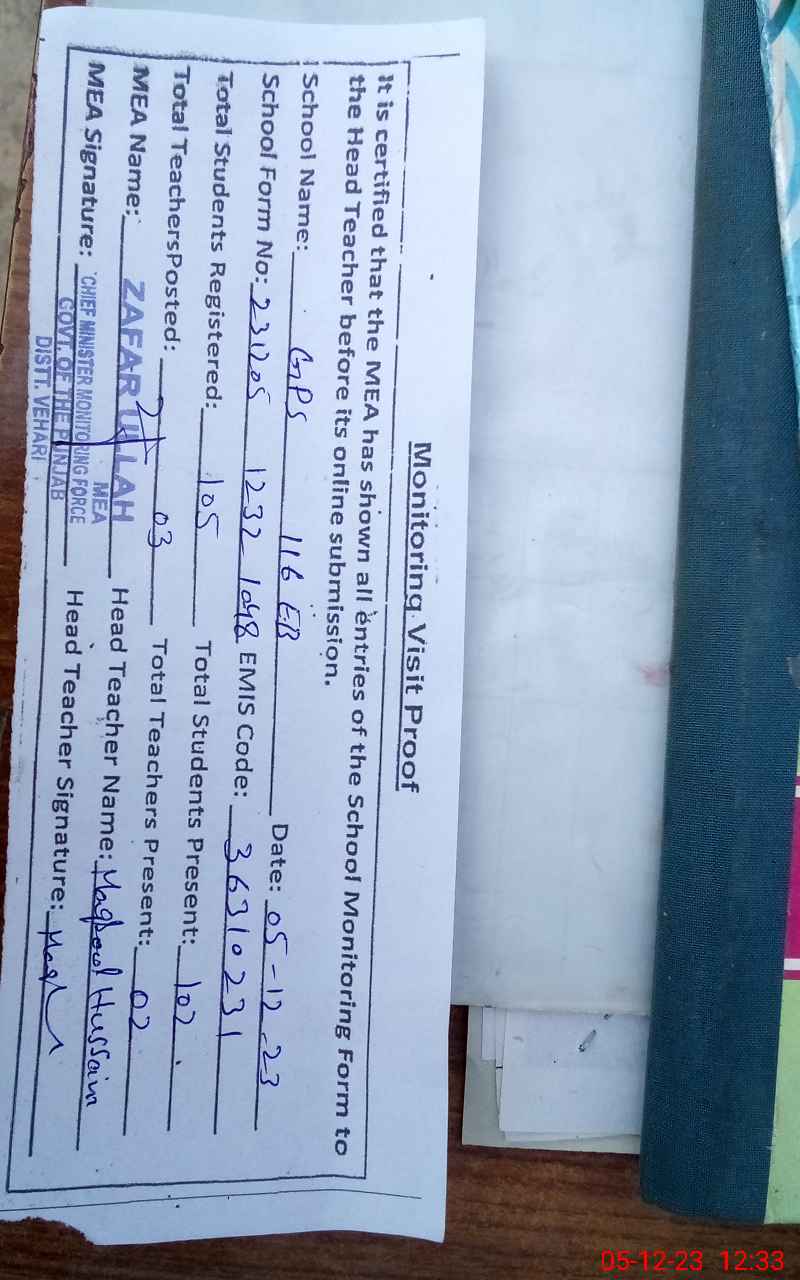 Monitoring Visit Proof
It is certified that the MEA has shown all entries of the School Monitoring Form to
the Head Teacher before its online submission.
School Name: GPS 116 EB Date: 05-12-23
School Form No: 231205 1232 1048 EMIS Code: 36310231
Total Students Registered: 105 Total Students Present: 102
Total TeachersPosted: 03 Total Teachers Present: 02
MEA Name: ZAFAR ULLAH Head Teacher Name: Maqbool Hussain
MEA
MEA Signature: CHIEF MINISTER MONITORING FORCE Head Teacher Signature:
GOVT. OF THE PUNJAB
DISTT. VEHARI
05-12-23 12:33